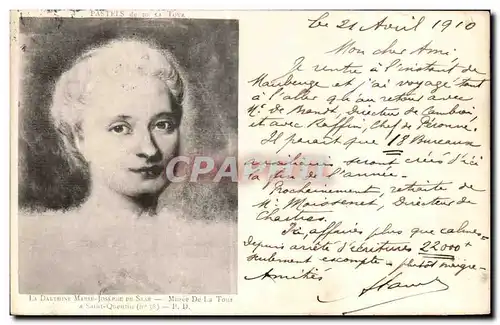 PASTELS de De La Tour
La Dauphine Marie-Josèphe de Saxe — Musée De La Tour
à Saint-Quentin (n° 38) — P. D.
Le 21 Avril 1910
Mon cher Ami
Je rentre à l'instant de
Maubeuge et j'ai voyagé tant
à l'aller qu'au retour avec
Mr de Directeur de Cambrai
et avec Ruffin, Chef de Péronne.
Il paraît que 18 Bureaux
seront créés d'ici
la fin de l'année.
Prochainement, retraite de
Mr Directeur de
Chartres.
Ici, affaires plus que calmes
depuis arrêté d'écritures 22000 f
seulement escompte - plutôt maigre -
Amitiés
CPArama